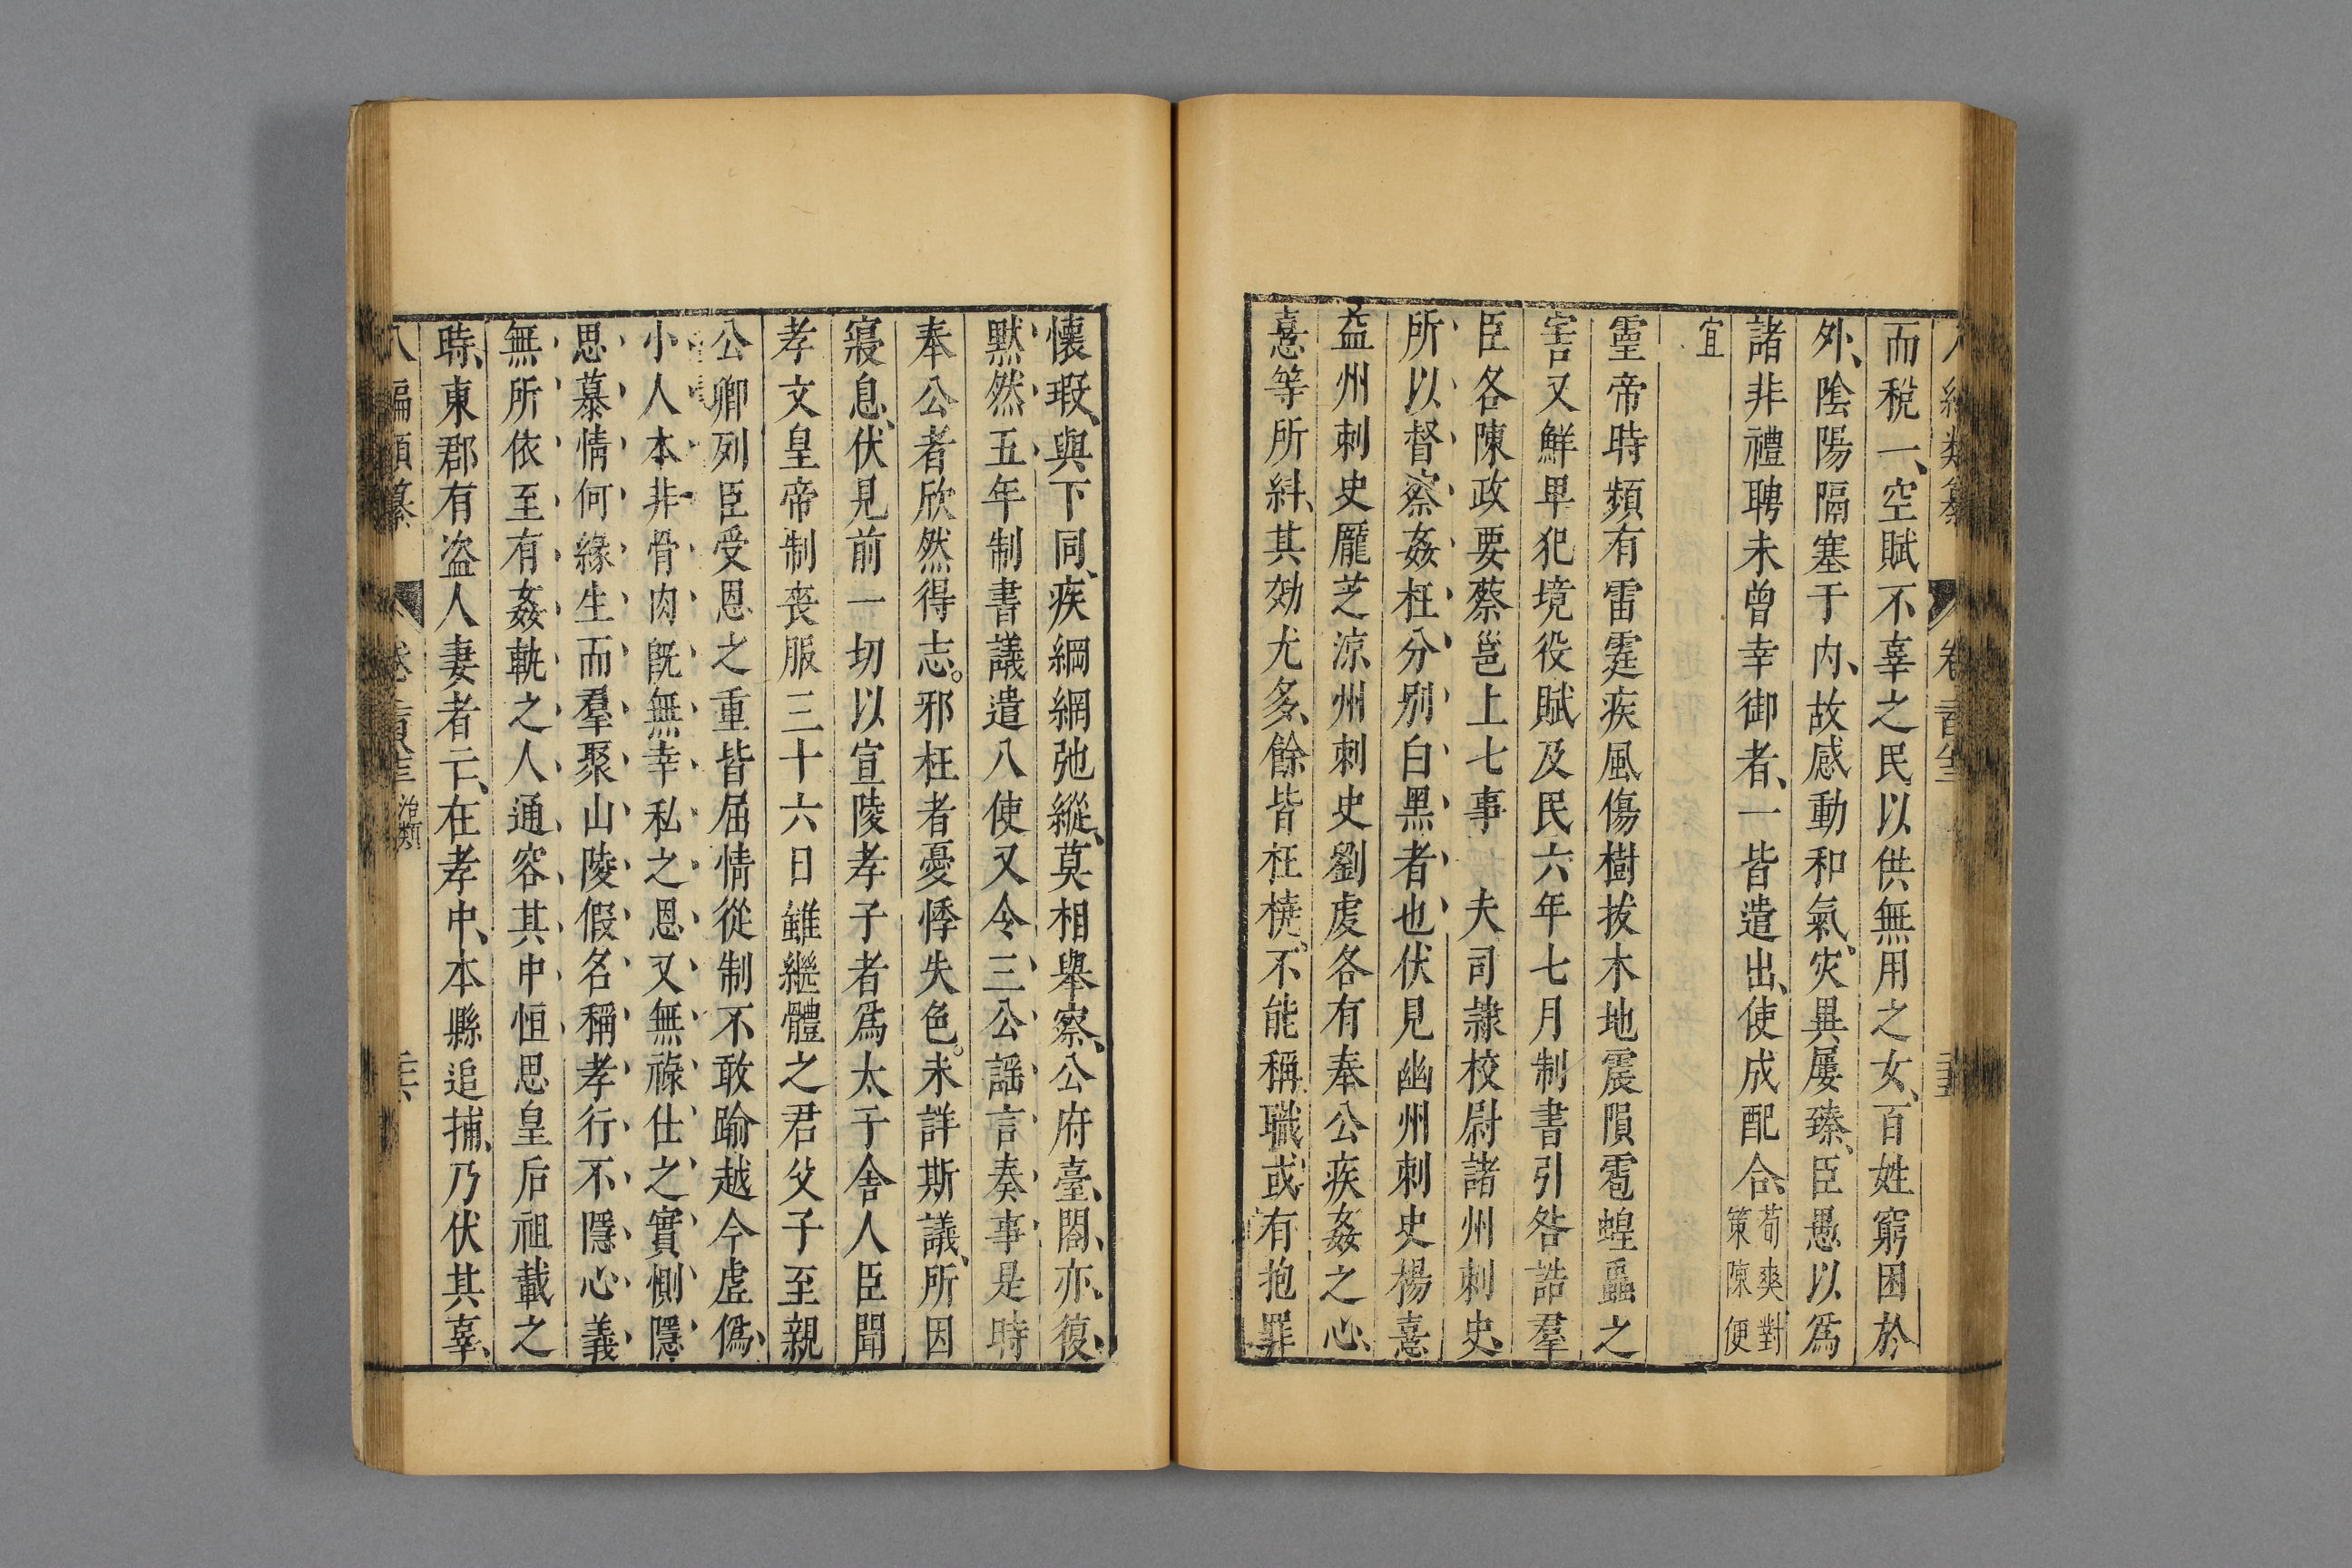 而稅一、空賦不辜之民以供無用之女、百姓窮困於
外、陰陽隔塞于內、故感動和氣、灾異屢臻、臣愚以爲
諸非禮聘未曾幸御者、一皆遣出、使成配合、荀爽對策陳便
宜
靈帝時頻有雷霆疾風傷樹拔木地震隕雹蝗蟲之
害又鮮卑犯境役賦及民六年七月制書引咎誥羣
臣各陳政要蔡邕上七事 夫司隸校尉諸州刺史、
所以督察姦枉分別白黑者也伏見幽州刺史楊憙
益州刺史龐芝涼州刺史劉虔各有奉公疾姦之心、
憙等所糾、其効尤多、餘皆枉橈、不能稱職、或有抱罪
懷瑕、與下同、疾綱網弛縱、莫相舉察、公府臺、閣、亦、復、
默然五年制書議遣八使又令三公謡言奏事是時
奉公者欣然得志。邪枉者憂悸失色。未詳斯議、所因
寢息、伏見前一切以宣陵孝子者爲太子舍人臣聞
孝文皇帝制喪服三十六日雖繼體之君父子至親
公卿列臣受恩之重皆屈情從制不敢踰越今虛僞、
小人本非骨肉旣無幸私之恩又無祿仕之實惻隱
思慕情何緣生而羣聚山陵假名稱孝行不隱心義
無所依至有姦軌之人通容其中恒思皇后祖載之
時、東郡有盗人妻者亡、在孝中、本縣追捕、乃伏其辜、
八編類纂 治類